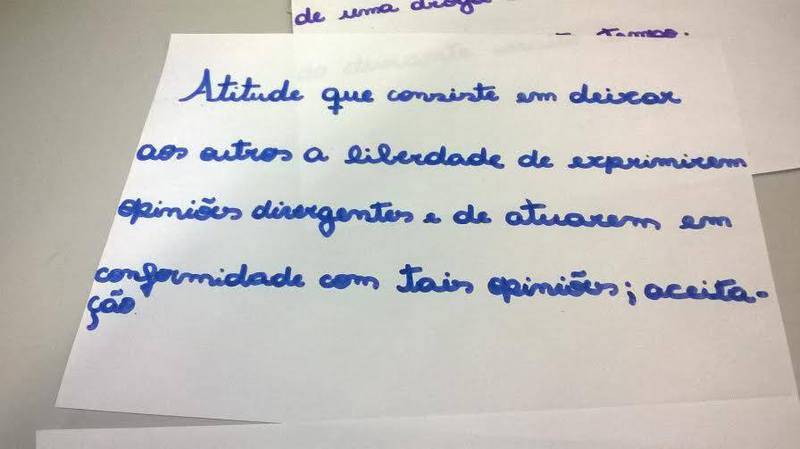 de uma droga
Atitude que consiste em deixar
aos outros a liberdade de exprimirem
opiniões divergentes e de atuarem em
conformidade com tais opiniões; aceita-
ção